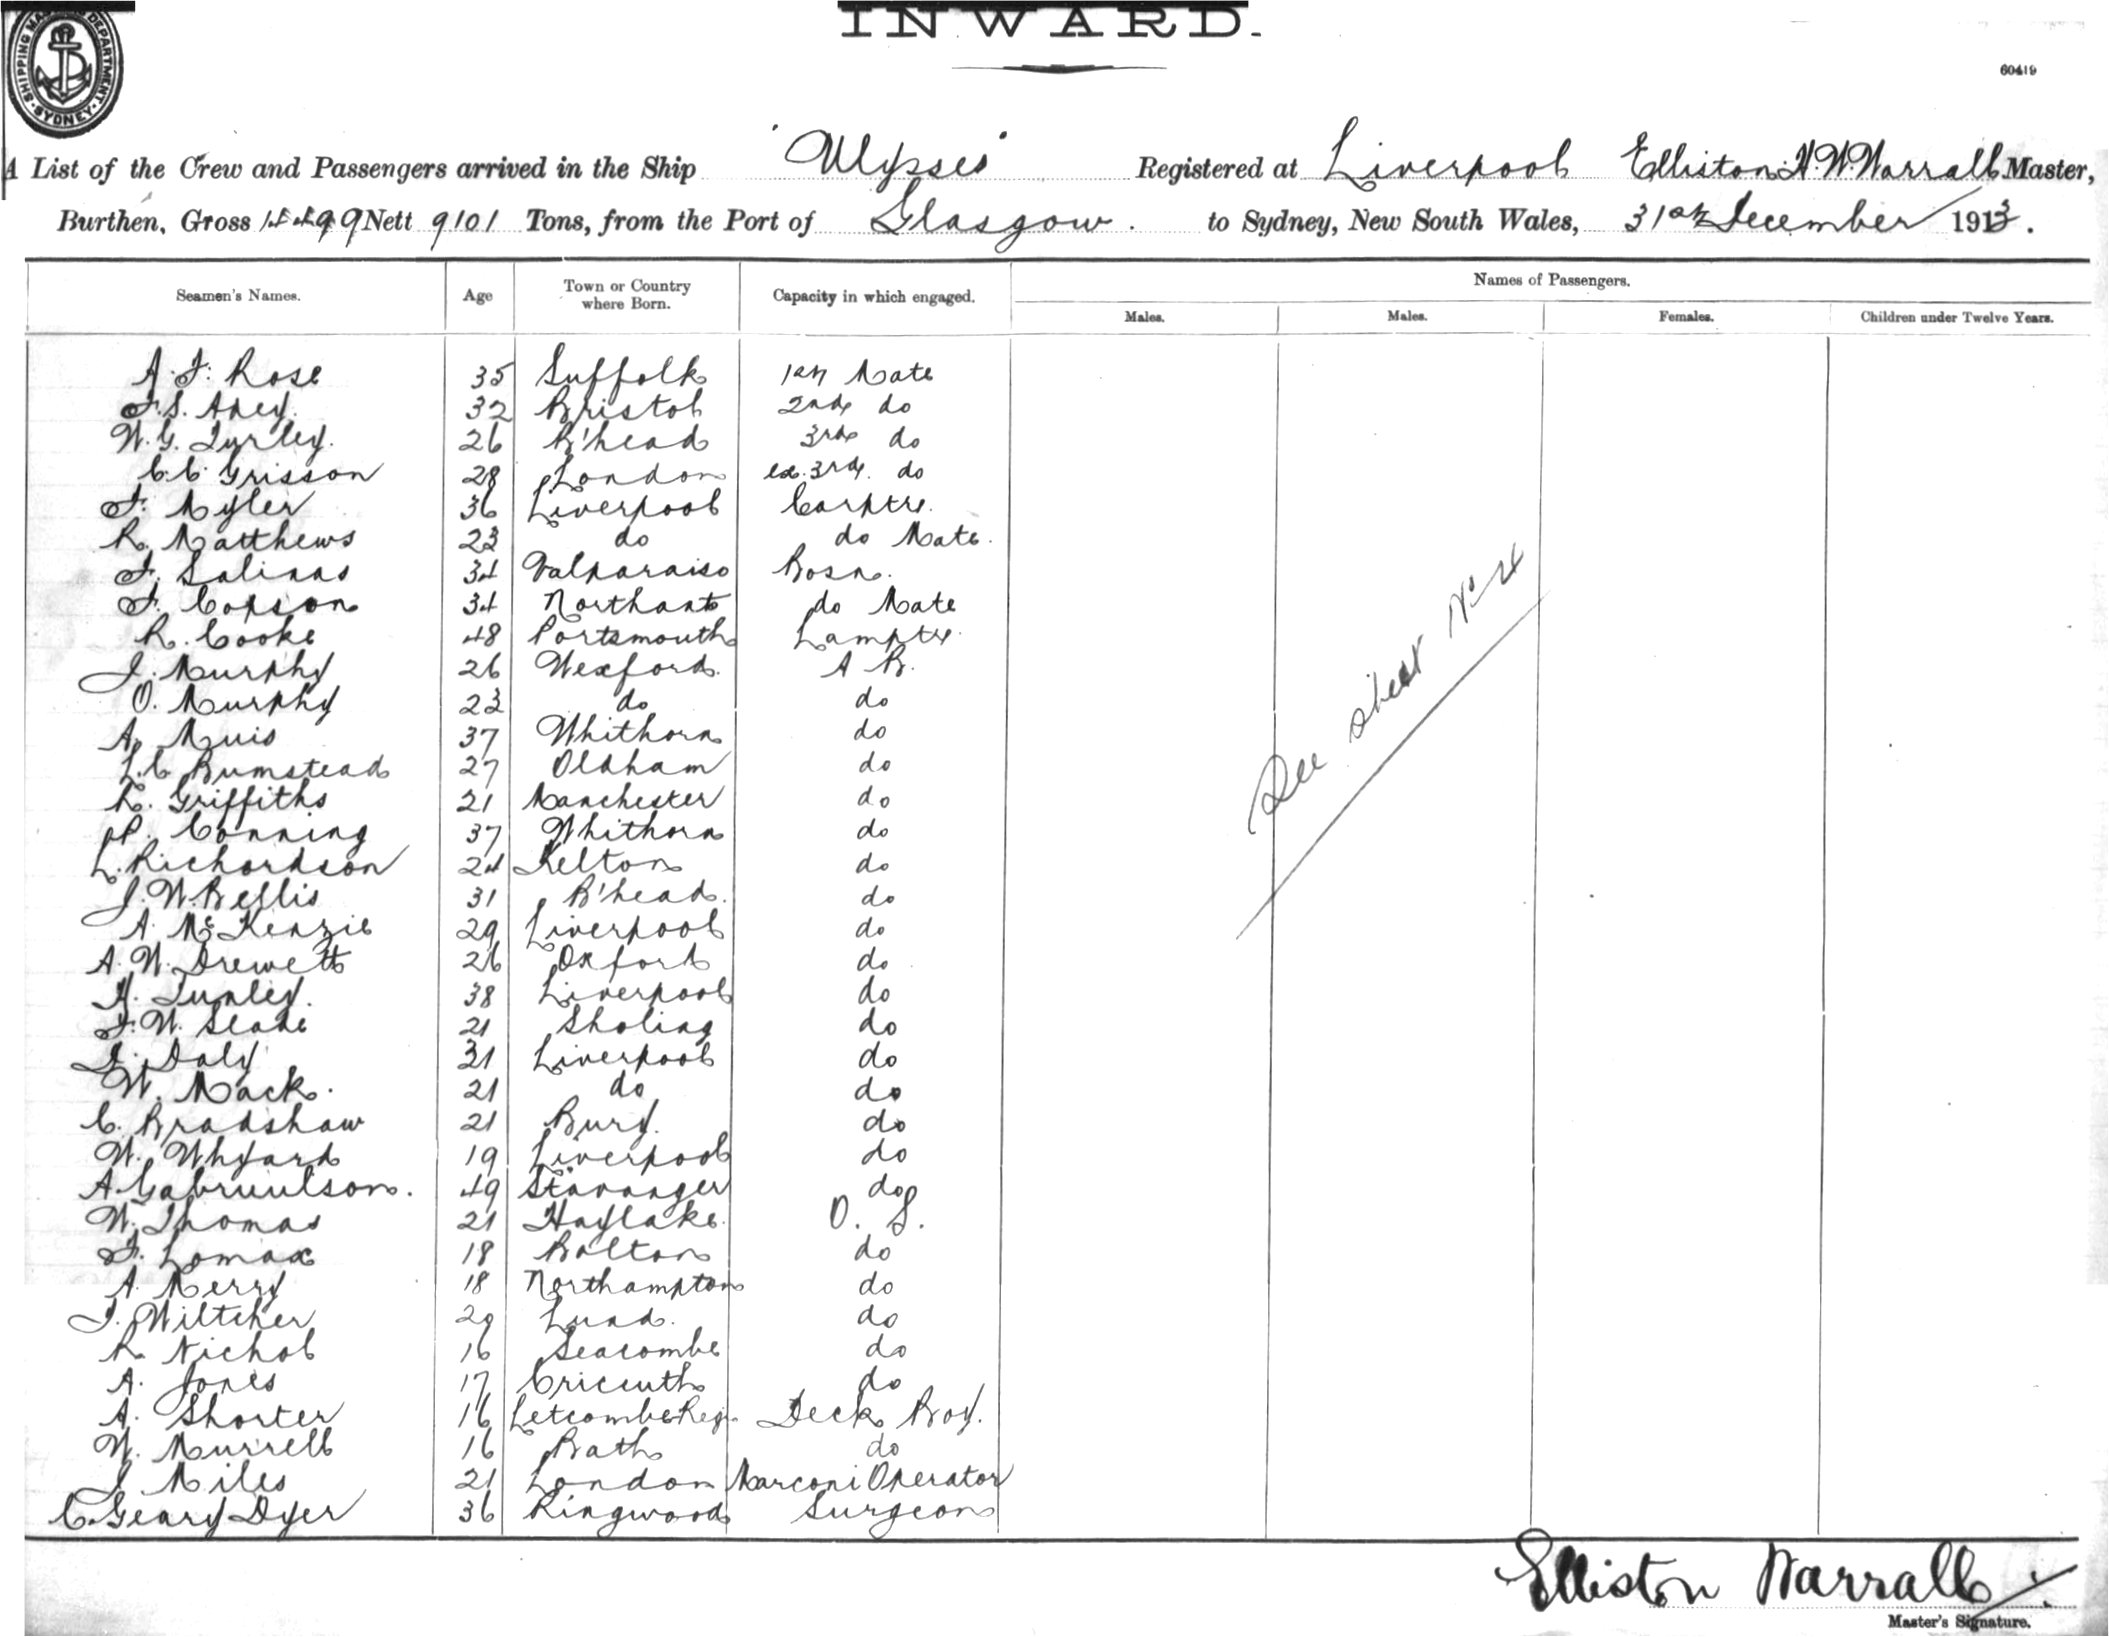 SHIPPING MASTER'S DEPARTMENT · SYDNEY ·
INWARD.
60419
A List of the Crew and Passengers arrived in the Ship "Ulysses" Registered at Liverpool Elliston H. W. Warrall Master,
Burthen, Gross 14499 Nett 9101 Tons, from the Port of Glasgow. to Sydney, New South Wales, 31st December 1913.
Seamen's Names. Age Town or Country where Born. Capacity in which engaged. Names of Passengers.
Males. Males. Females. Children under Twelve Years.
A. F. Rose 35 Suffolk 1st Mate
F.S. 32 Bristol 2nd do
W. G. Turley. 26 B'head 3rd do
C.C. Grisson 28 London ex. 3rd. do
F. Myler 36 Liverpool Carptr.
R. Matthews 23 do do Mate.
F. Salinas 34 Valparaiso Bosn.
F. Copson 34 Northants do Mate
R. Cooke 48 Portsmouth Lamptr.
J. Murphy 26 Wexford. A B.
O. Murphy 23 do do
A. Muis 37 Whithorn do
L.C. Bumstead 27 Oldham do
R. Griffiths 21 Manchester do
P. Conning 37 Whithorn do
L. Richardson 24 Kelton do
J. W. Bellis 31 B'head. do
A. McKenzie 29 Liverpool do
A. W. Drewett 26 Oxford do
H. Tunley. 38 Liverpool do
F. W. Slade 21 Sholing do
J. Daly 31 Liverpool do
W. Mack. 21 do do
C. Bradshaw 21 Bury. do
W. Whyard 19 Liverpool do
A. Gabrielson. 49 Stavanger do
W. Thomas 21 Hoylake. O. S.
F. Lomax 18 Bolton do
A. Merry 18 Northampton do
J. Wiltcher 20 Lund. do
R. Nichol 16 Seacombe do
A. Jones 17 Criccieth do
A. Shorter 16 Letcombe Reg. Deck Boy.
W. Murrell 16 Bath do
J. Miles 21 London Marconi Operator
C. Geary Dyer 36 Ringwood Surgeon
See sheet No 4
Elliston Warrall
Master's Signature.